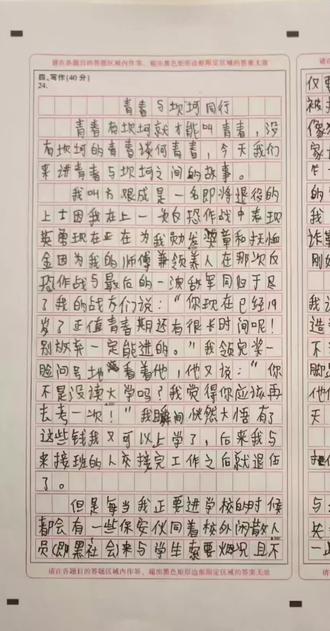 请在各题目的答题区域内作答，超出黑色矩形边框限定区域的答案无效
四、写作(40分)
24.
青春与坎坷同行
青春有坎坷就才能叫青春，没
有坎坷的青春谈何青春，今天我们
来讲青春与坎坷之间的故事。
我叫方根成是一名即将退役的
上士因我在上一次反恐作战中表现
英勇现在正在为我颁发奖章和抚恤
金因为我的师傅兼领养人在那次反
恐作战与最后的一波敌军同归于尽
了我的战友们说：“你现在已经19
岁了正值青春期还有很长时间呢！
别放弃一定能进的。”我领完奖一
脸问号地看着他，他又说：“你
不是没读大学吗？我觉得你应该再
去考一次！”我瞬间恍然大悟有了
这些钱我又可以上学了，后来我与
来接班的人交接完工作之后就退伍
了。
但是每当我正要进学校的时候
都会有一些保安伙同着校外闲散人
员(即黑社会)来与学生索要烟况且不
请在各题目的答题区域内作答，超出黑色矩形边框限定区域的答案无效